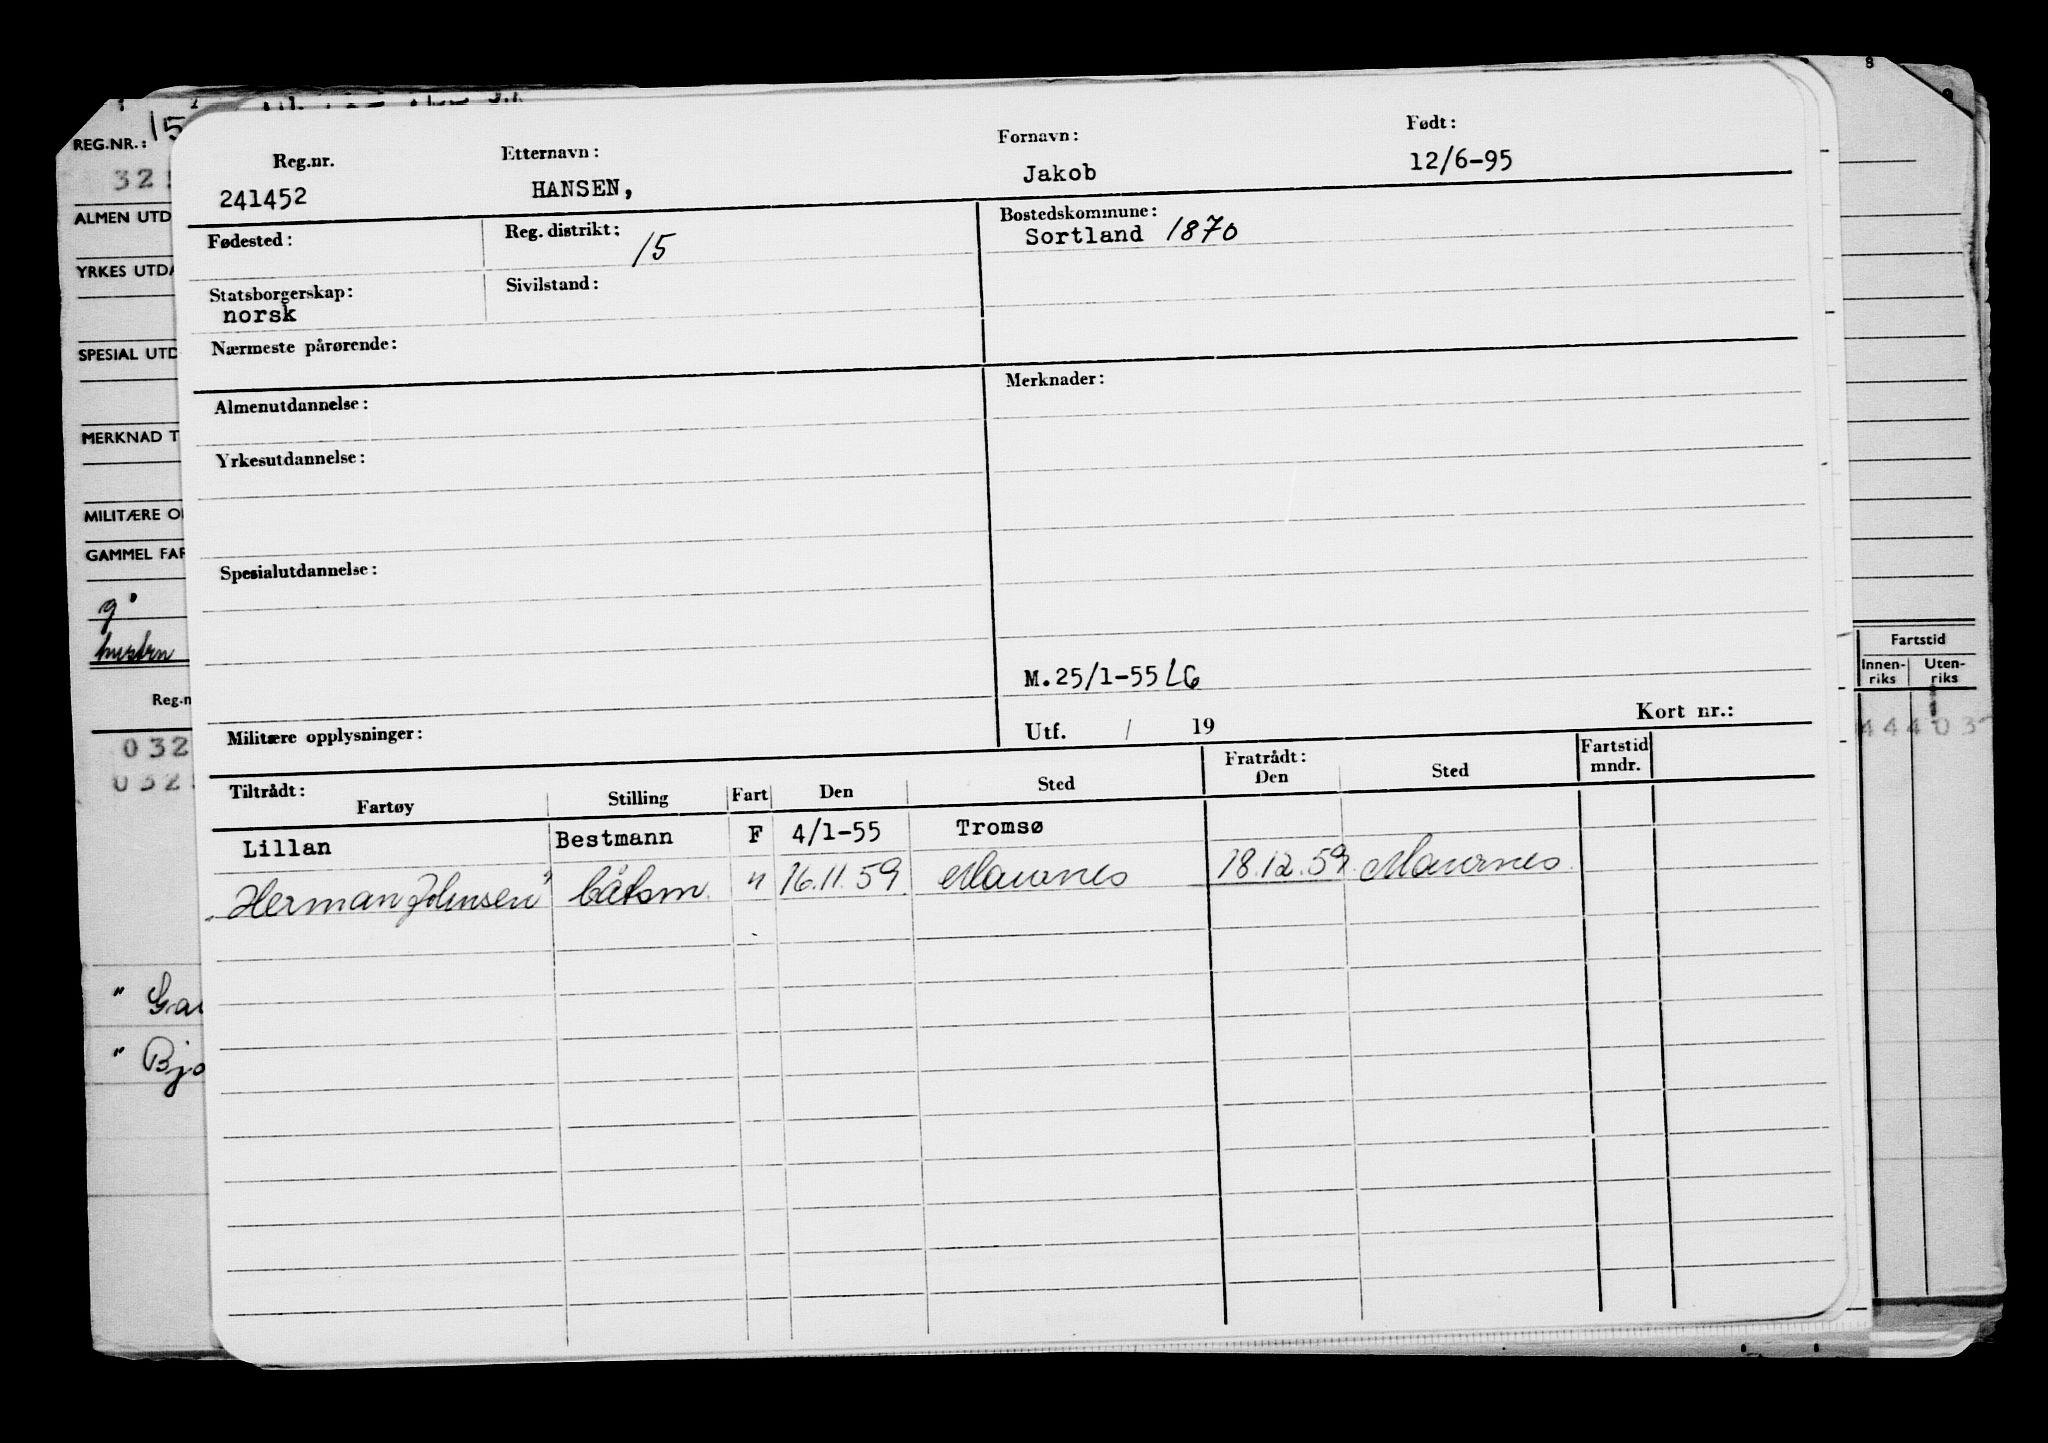 REG.NR.: 15
ALMEN UTD
YRKES UTDA
SPESIAL UTD
MERKNAD T
MILITÆRE O
GAMMEL FAR
Reg.n
032
032
" Ga
" Bjo
Reg.nr. Etternavn: Fornavn: Født:
241452 HANSEN, Jakob 12/6-95
Fødested: Reg. distrikt: 15 Bostedskommune:
Sortland 1870
Statsborgerskap: Sivilstand:
norsk
Nærmeste pårørende:
Almenutdannelse: Merknader:
Yrkesutdannelse:
Spesialutdannelse:
M.25/1-55 LG
Militære opplysninger: Utf. / 19 Kort nr.:
Tiltrådt: Fratrådt: Fartstid
Fartøy Stilling Fart Den Sted Den Sted mndr.
Lillan Bestmann F 4/1-55 Tromsø
"Herman Johnsen" båtsm. " 16.11.59 Maurnes 18.12.59. Maurnes
Fartstid
Innen- Uten-
riks riks